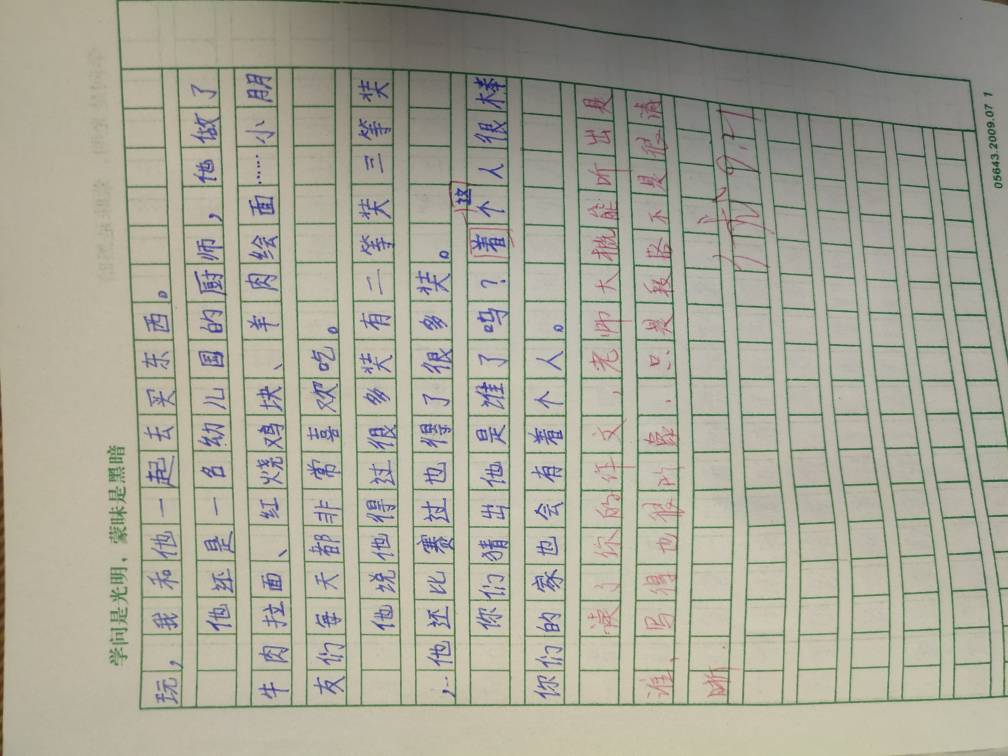 学问是光明，蒙昧是黑暗
玩，我和他一起去买东西。
他还是一名幼儿国的厨师，他做了
牛肉拉面、红烧鸡块、羊肉绘面……小朋
友们每天都非常喜欢吃。
他说他得过很多奖有二等奖三等奖
，…他还比赛过也得了很多奖。
你们猜出他是谁了吗？着个人很棒
这
你们的家也会有着个人。
读了你的作文，老师大概能听出是
谁，写得也很，只是段落不是很清
晰
9.17
05643.2009.07 1